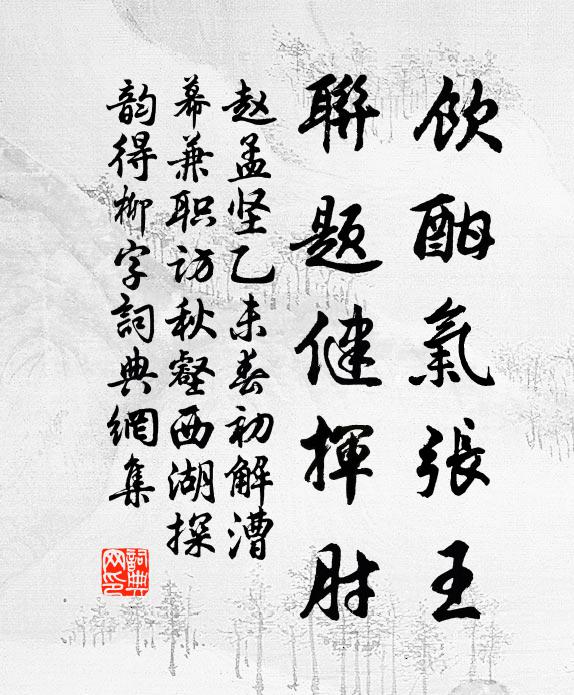 饮酣氣張王
聯题健揮肘
赵孟坚乙未春初解漕
幕兼职访秋壑西湖探
韵得柳字詞典網集
詞典网印